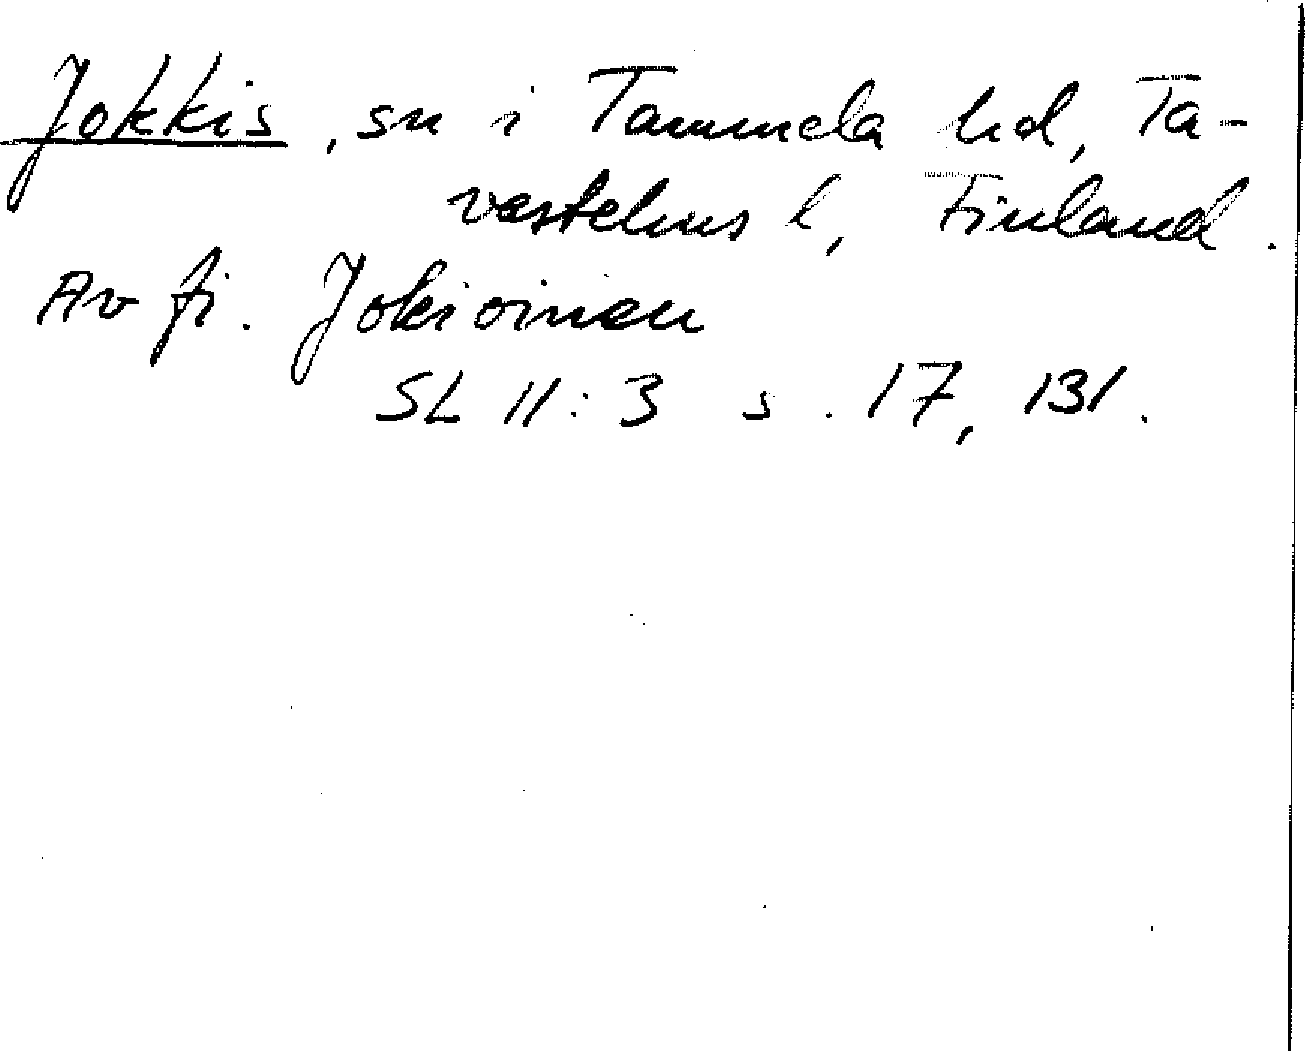 Jokkis, sn i Tammela hd, Ta-
vastehus l, Finland.
Av fi. Jokioinen
SL 11:3 s. 17, 131.